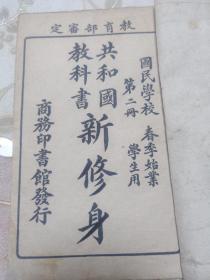 教育部審定
國民學校 春季始業
第二冊 學生用
共和國
教科書
新修身
商務印書館發行